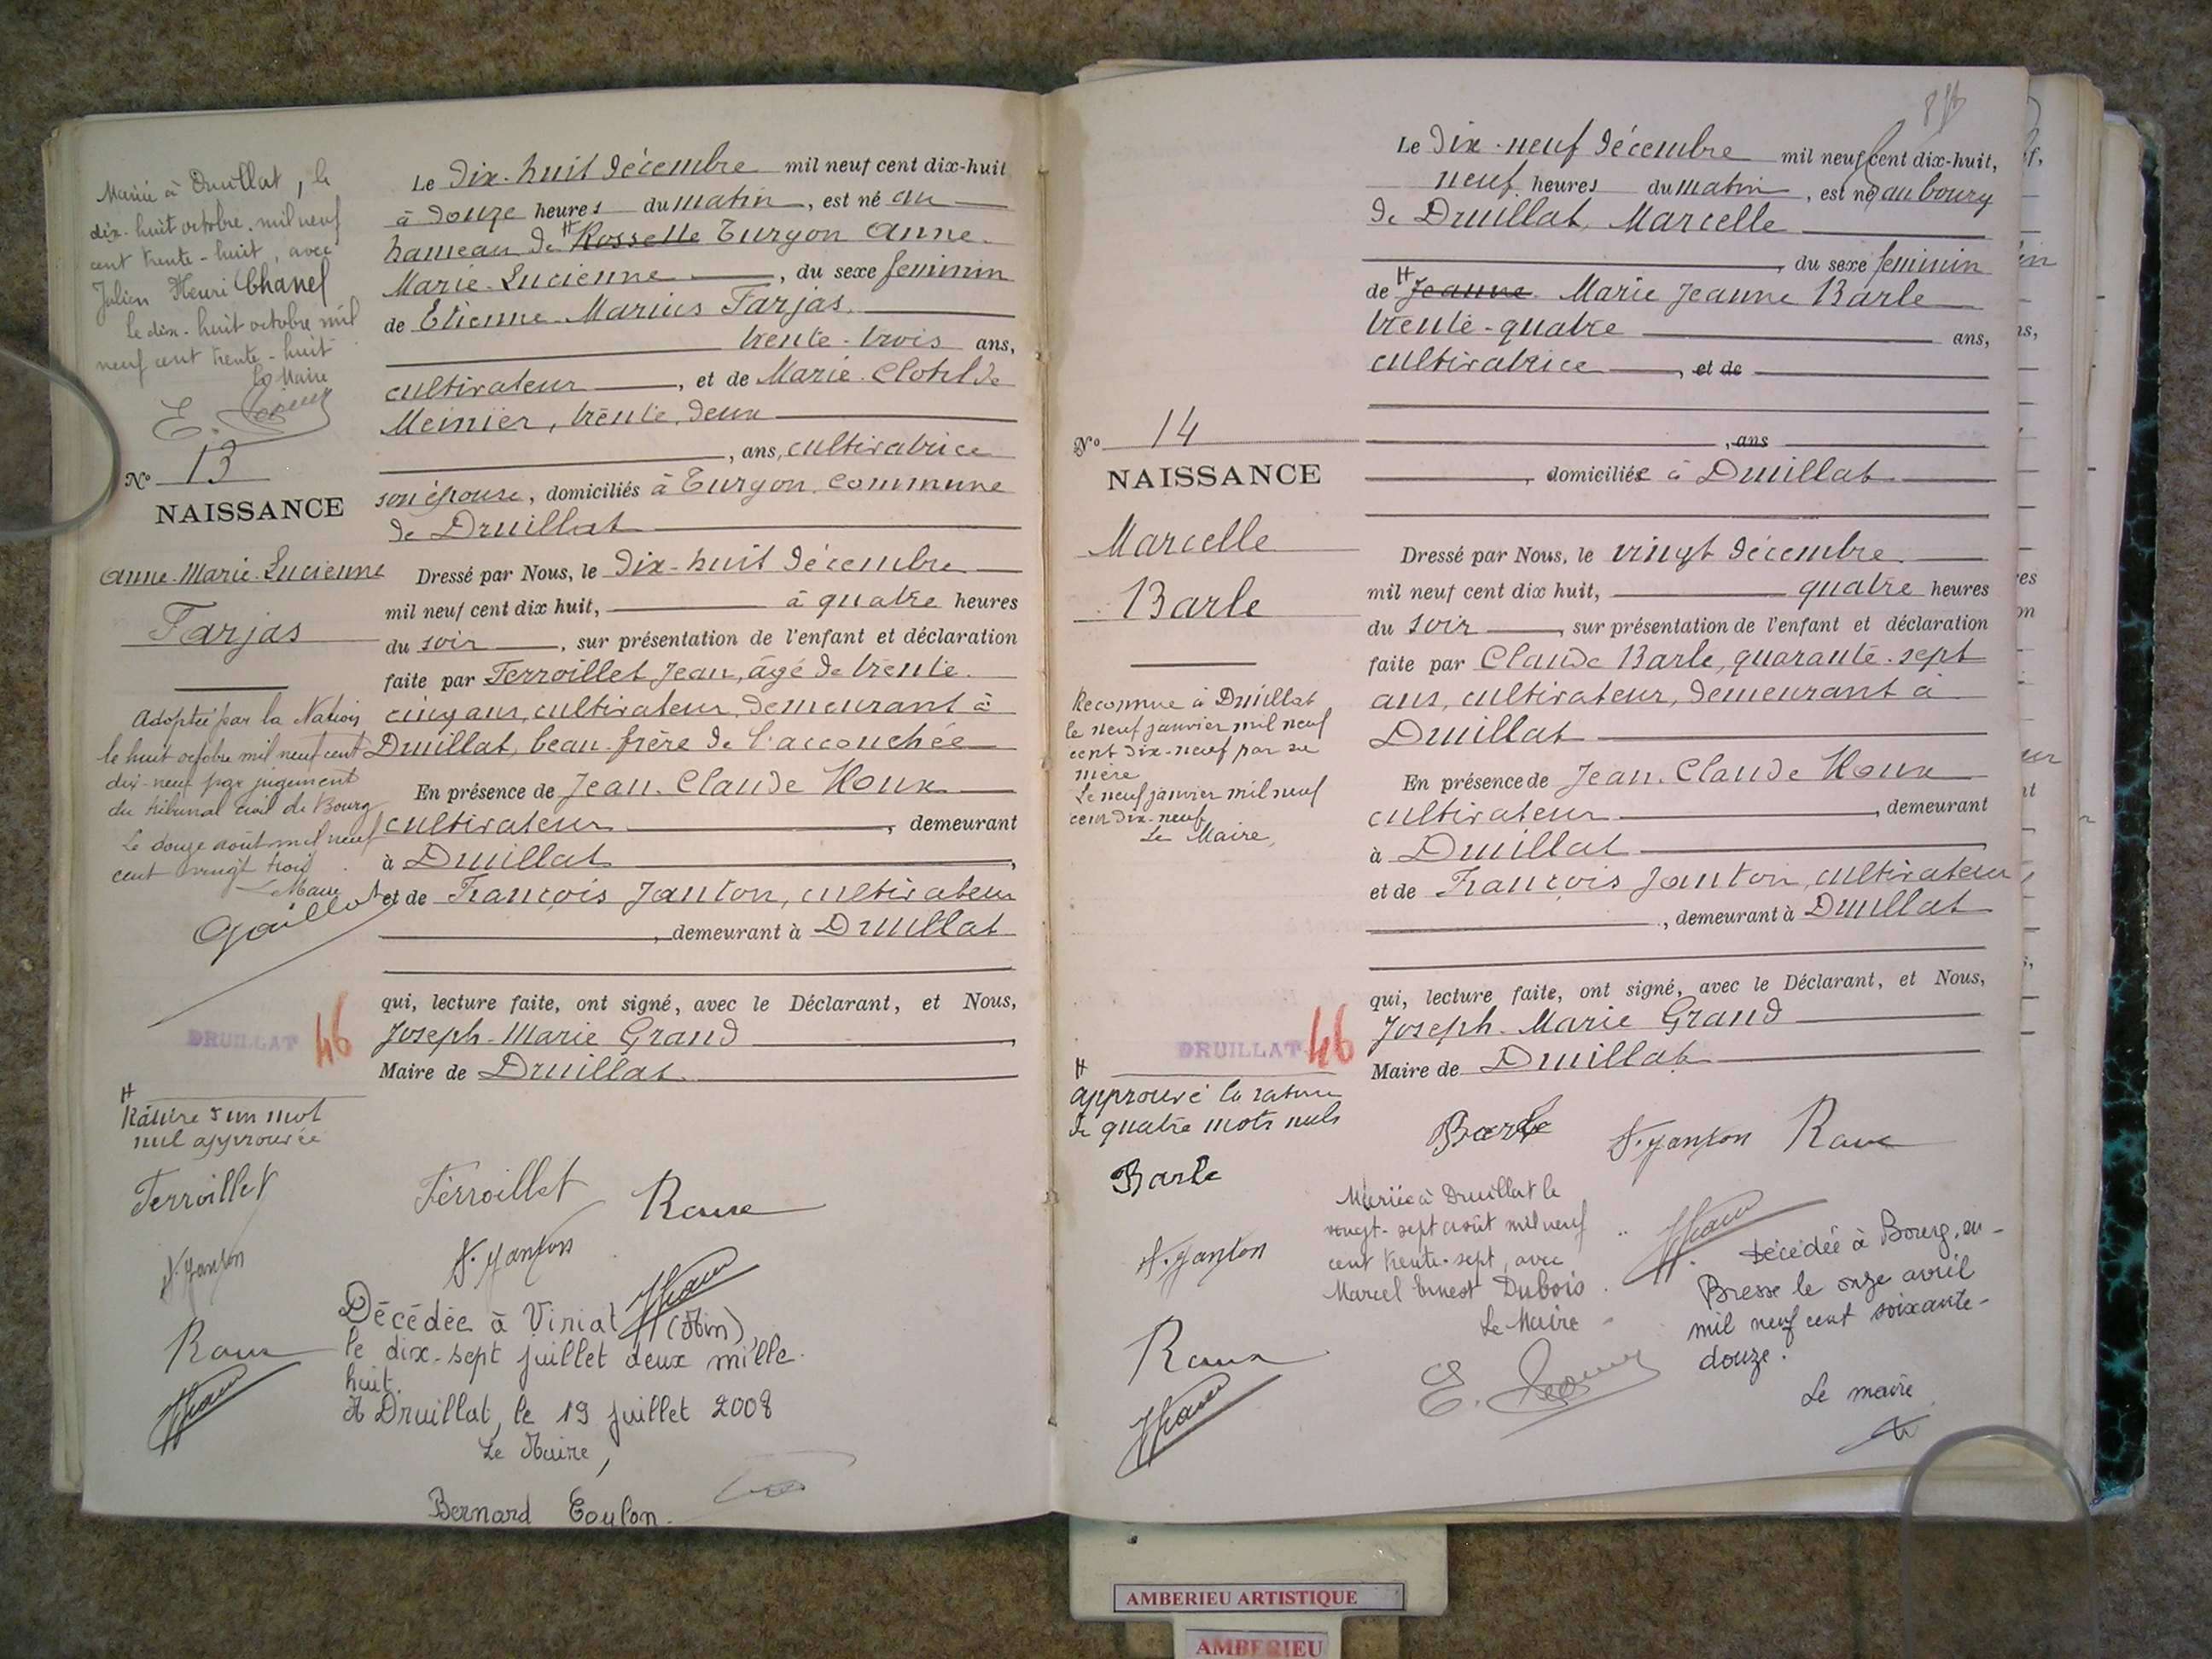 Marié à Druillat, le
dix-huit octobre mil neuf
cent trente-huit, avec
Julien Henri Chanel
Le dix-huit octobre mil
neuf cent trente-huit
Le Maire
E.
N° 13
NAISSANCE
Anne-Marie-Lucienne
Farjas
Adoptée par la Nation
le huit octobre mil neuf cent
dix-neuf par jugement
du tribunal civil de Bourg
Le douze août mil neuf
cent vingt trois
Le Maire
Gaillot
DRUILLAT 46
Rature d'un mot
nul approuvée
Ferroillet
F. Janton
Roux
Le Dix-huit Décembre mil neuf cent dix-huit
à Douze heures du matin, est né au
hameau de Rosselle Turgon Anne-
Marie-Lucienne, du sexe feminin
de Etienne-Marius Farjas.
trente-trois ans,
cultivateur, et de Marie-Clotilde
Meinier, trente-deux
, ans, cultivatrice
son épouse, domiciliés à Turgon, commune
de Druillat
Dressé par Nous, le Dix-huit Décembre
mil neuf cent dix huit, à quatre heures
du soir, sur présentation de l'enfant et déclaration
faite par Ferroillet Jean, âgé de trente-
cinq ans, cultivateur, demeurant à
Druillat, beau-frère de l'accouchée
En présence de Jean-Claude Roux
cultivateur, demeurant
à Druillat,
et de François Janton, cultivateur
, demeurant à Druillat
qui, lecture faite, ont signé, avec le Déclarant, et Nous,
Joseph-Marie Grand,
Maire de Druillat.
Ferroillet Roux
F. Janton
Décédée à Viriat (Ain)
le dix-sept juillet deux mille
huit.
A Druillat, le 19 juillet 2008
Le Maire,
Bernard Toulon.
N° 14
NAISSANCE
Marcelle
Barle
Reconnue à Druillat
le neuf janvier mil neuf
cent dix-neuf par sa
mère
Le neuf janvier mil neuf
cent dix-neuf
Le Maire,
DRUILLAT 46
approuvé la rature
de quatre mots nuls
Barle
F. Janton
Roux
Le Dix-neuf Décembre mil neuf cent dix-huit,
neuf heures du matin, est né au bourg
de Druillat, Marcelle
, du sexe feminin
de Jeanne. Marie Jeanne Barle
trente-quatre ans,
cultivatrice, et de
, ans
, domiciliée à Druillat.
Dressé par Nous, le vingt Décembre
mil neuf cent dix huit, quatre heures
du soir, sur présentation de l'enfant et déclaration
faite par Claude Barle, quarante-sept
ans, cultivateur, demeurant à
Druillat
En présence de Jean-Claude Roux
cultivateur, demeurant
à Druillat
et de François Janton, cultivateur
, demeurant à Druillat
qui, lecture faite, ont signé, avec le Déclarant, et Nous,
Joseph-Marie Grand
Maire de Druillat
Barle F. Janton Roux
Mariée à Druillat le
vingt-sept août mil neuf
cent trente-sept, avec
Marcel Ernest Dubois.
Le Maire
E.
Décédée à Bourg-en-
Bresse le onze avril
mil neuf cent soixante-
douze.
Le maire
AMBERIEU ARTISTIQUE
AMBERIEU